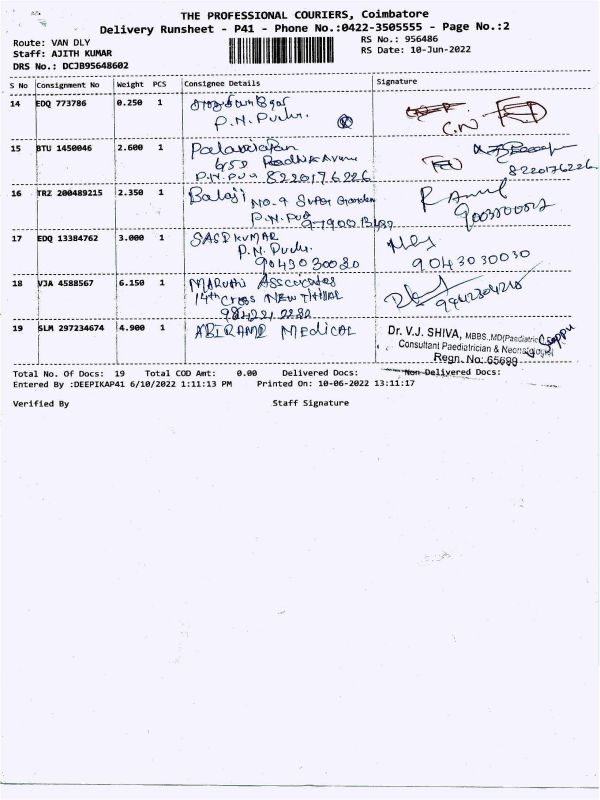 THE PROFESSIONAL COURIERS, Coimbatore
Delivery Runsheet - P41 - Phone No.:0422-3505555 - Page No.:2
Route: VAN DLY RS No.: 956486
Staff: AJITH KUMAR RS Date: 10-Jun-2022
DRS No.: DCJB95648602
S No Consignment No Weight PCS Consignee Details Signature
14 EDQ 773786 0.250 1
P.N. Pudur.
C.N
15 BTU 1450046 2.600 1
P.N. Pud 8220176226 8220176226
16 TRZ 200489215 2.350 1 Balaji
NO-9
P.N. Pud
17 EDQ 13384762 3.000 1 SASI KUMAR
P.N. Pudu.
9043030030 9043030030
18 VJA 4588567 6.150 1 MARUTHI Associates
14th Cross NEW THILLAI
19 SLM 297234674 4.900 1 ABIRAMI MEDICAL
Dr. V.J. SHIVA, MBBS.,MD(Paediatric
Consultant Paediatrician & Neonatologist
Regn. No: 65699
Total No. Of Docs: 19 Total COD Amt: 0.00 Delivered Docs: Non Delivered Docs:
Entered By :DEEPIKAP41 6/10/2022 1:11:13 PM Printed On: 10-06-2022 13:11:17
Verified By Staff Signature